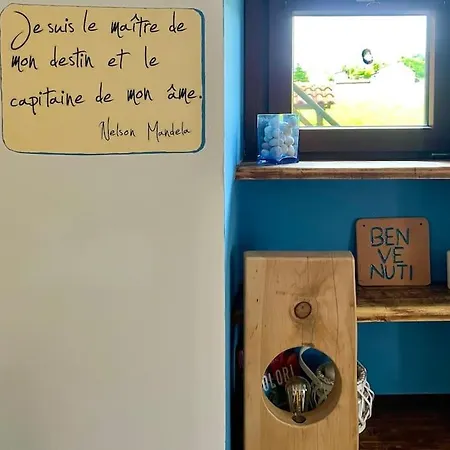 Je suis le maître de
mon destin et le
capitaine de mon âme.
Nelson Mandela
BEN
VE
NUTI
OLORI